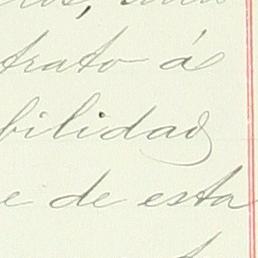 trato á
bilidad
e de esta